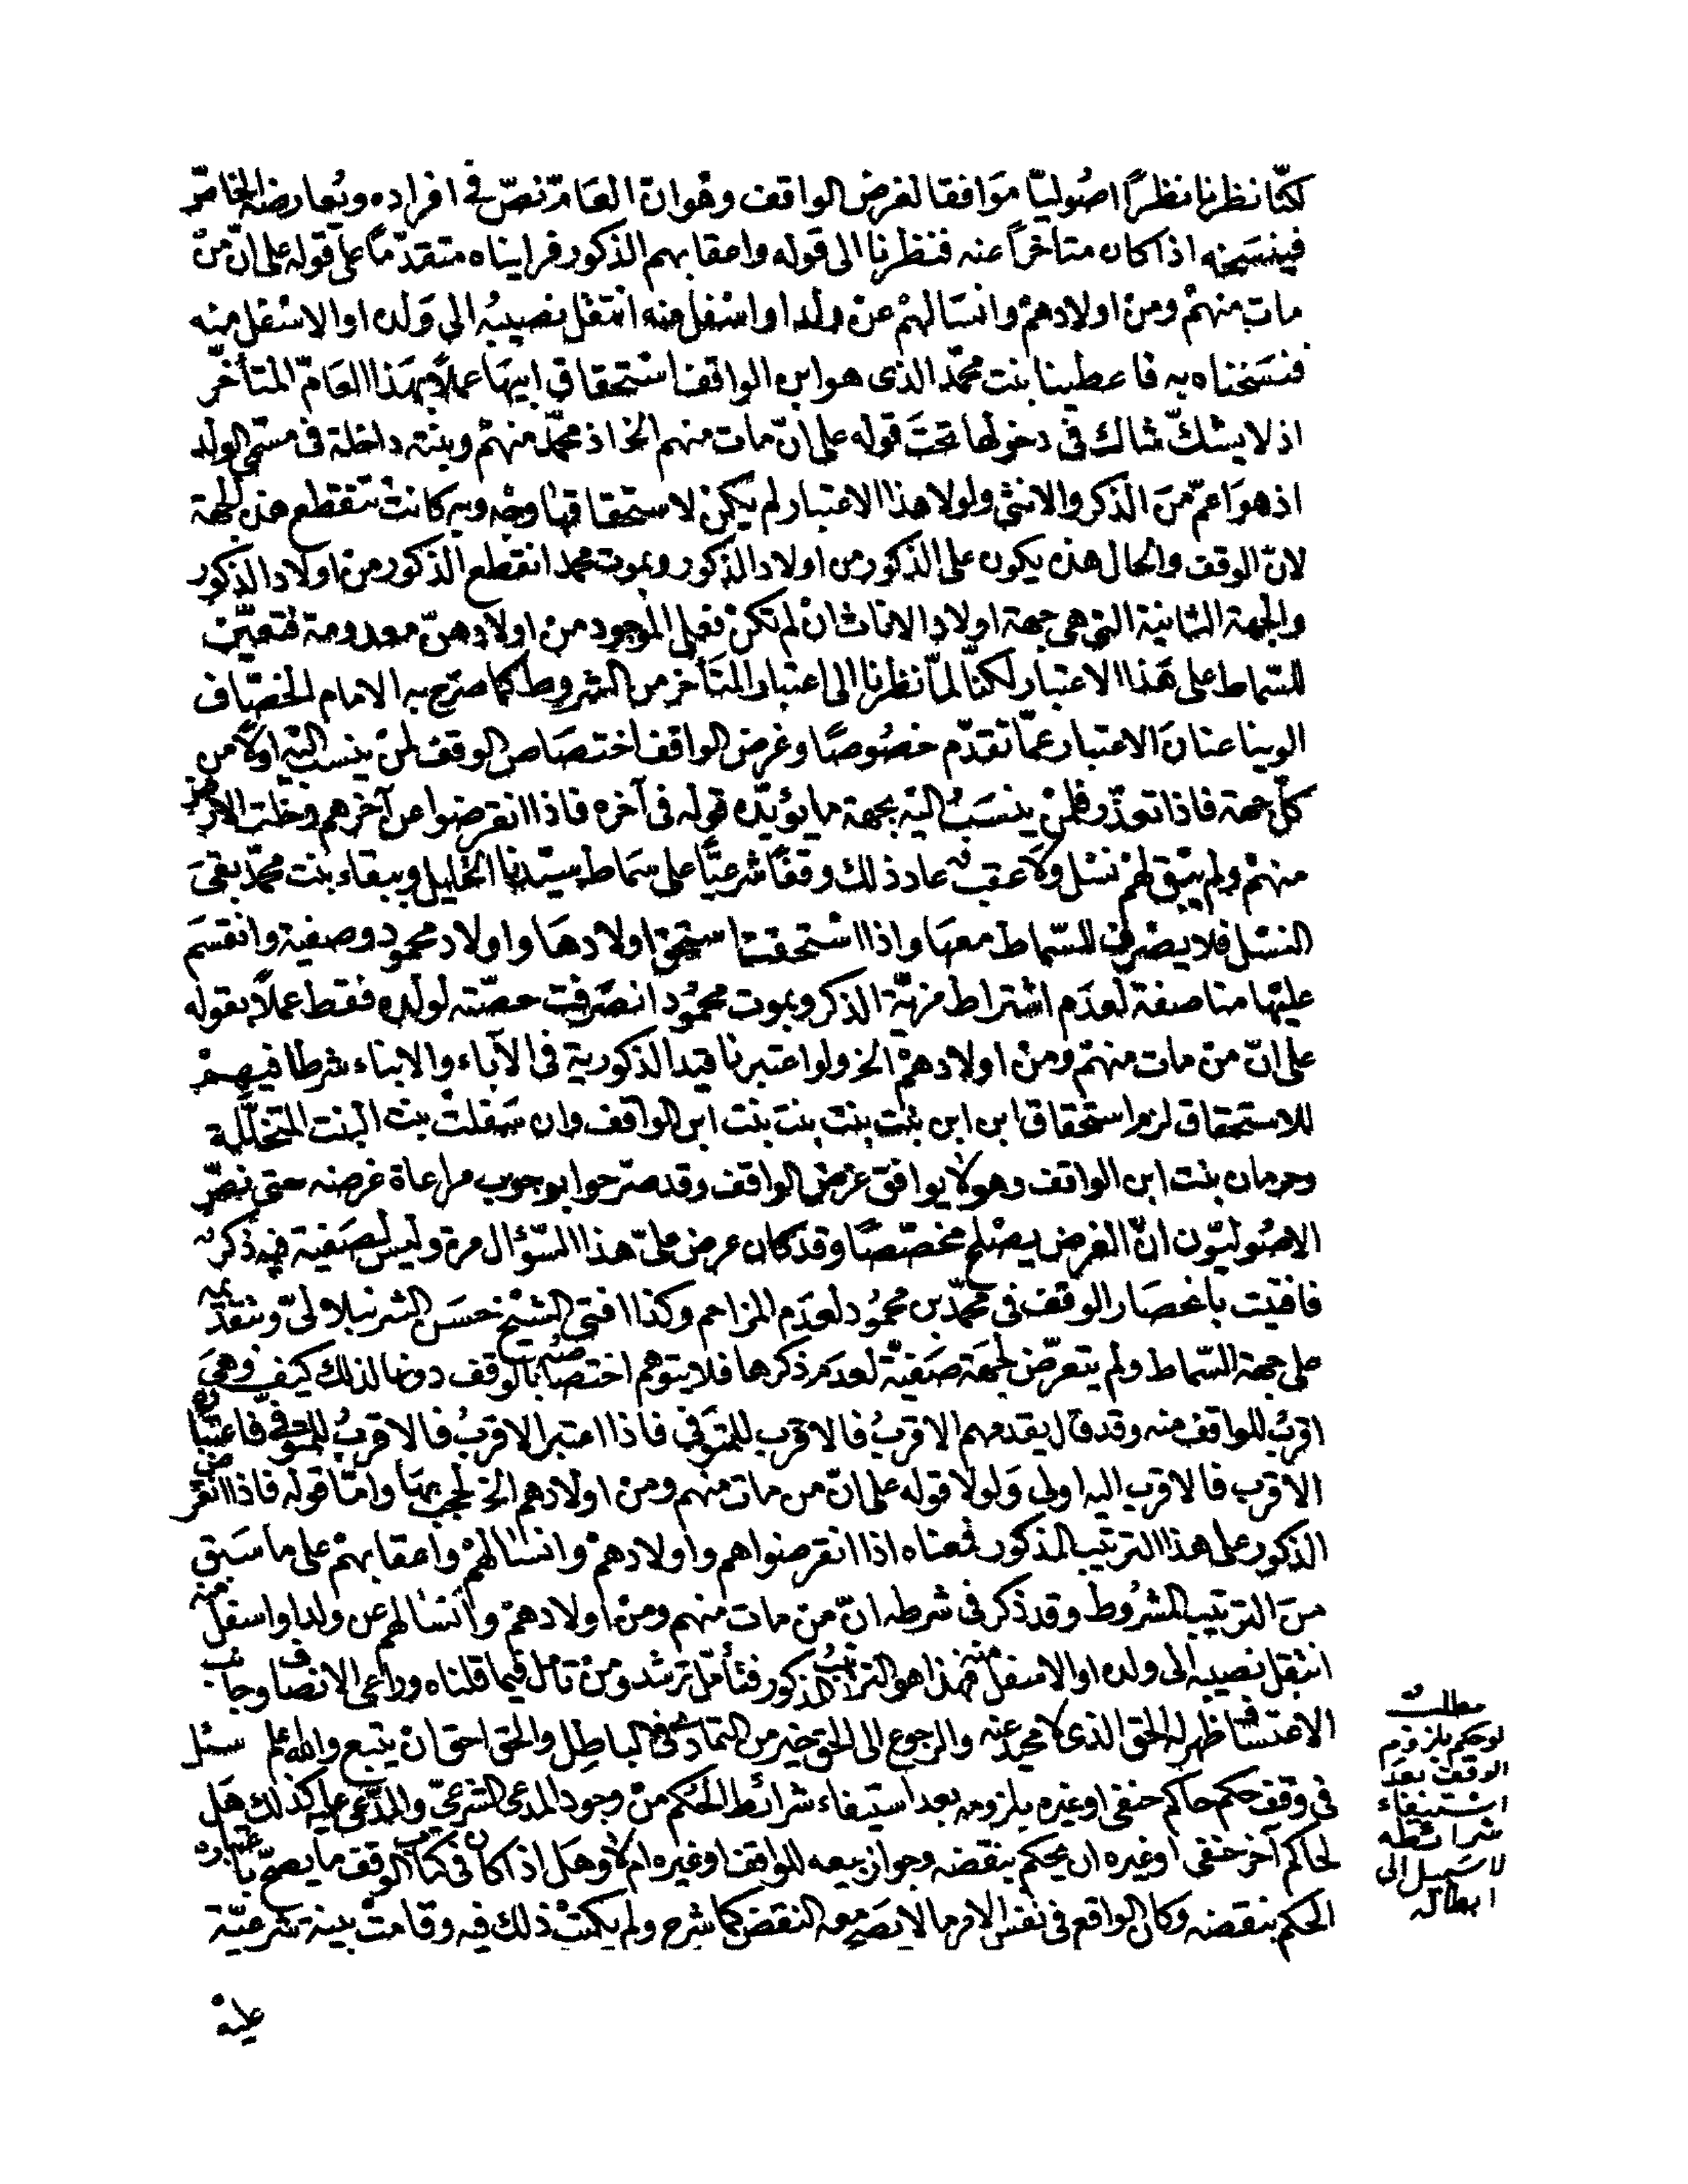 لكنّا نظرنا نظرًا اصُوليّا مَوَافقا لغرض الواقف وهُوان العَامّ نصّ في افراده ويُعارضه الخاصّ
فينسَخه اذا كان متأخراً عنه فنظرنا الى قوله واعقابهم الذكور فراينا متقدّمًا على قوله على انّ منْ
مات منهمْ ومنْ اولادهمْ وانسَالهمْ عنْ ولد او اسْفل منه انتقل نصيبهُ الى وَلده او الاسْفل منه
فنسَخناه به فاعطينا بنت محمّد الذى هو ابن الواقف استحقاق ابيهَا عملًا بهَذا العَامّ المتأخّر
اذ لا يشكّ شاك فى دخولها تحتَ قوله على انّ مات منهم الخ اذ محمّد منهمْ وبنته داخلة فى مسَمى الولد
اذ هوَ اعمّ منَ الذكر والانثى ولولا هذا الاعتبار لم يكنْ لاستحقاقها وجْه وبه كانتْ تنقطع هذه الجهة
لانّ الوقف والحال هذه يكون على الذكور من اولاد الذكور وبموت محمد انقطع الذكور من اولاد الذكور
والجهة الثانية التى هى جهة اولاد الاناث انْ لم تكنْ فعلى الموجود منْ اولادهنّ معدومة فتعيّن
للسّماط على هَذا الاعتبار لكنّا لمّا نظرنا الى اعتبار المتَأخر من الشروط كما صرّح به الامام الخصّاف
الوينا عنانَ الاعتبار عمّا تقدّم خصُوصًا وغرض الواقف اختصَاص الوقف لمنْ ينسبُ اليْه اولًا من
كلّ جهة فاذا تعذّر فلمنْ ينسَبُ اليْه بجهة ما يؤيّده قوله فى آخره فاذا انقرضوا عن آخرهم وخلت الارض
منهمْ ولم يَبْق لهمْ نسْل ولَا عقبٌ عاد ذلك وقفًا شرعيًّا على سمَاط سيّدنا الخليل وببقاء بنت محمّد بقىَ
النسْل فلا يصْرفُ للسّماط معهَا واذا اسْتحقت استحق اولادهَا واولاد محمود وصفية وانقسَمَ
عليْها مناصفة لعدَم اشتراط مزيّة الذكر وبموت محمُود انصَرفت حصّته لولده فقط عملًا بقوله
على انّ منْ مات منهمْ ومنْ اولادهمْ الخ ولو اعتبرنا قيد الذكورية فى الآباء والابناء شرطا فيهمْ
للاستحقاق لزم استحقاق ابن ابن بنت بنت بنت بنت ابن الواقف وان سَفلتْ بنت البنت المتخلّلة
وحرمان بنت ابن الواقف وهو لَا يوافق غرض الواقف وقد صرّحوا بوجوب مراعاة غرضه حتى نصّ
الاصُوليّون انّ الغرض يصْلح مخصّصًا وقد كان عرض علىّ هذا السّؤال مرة وليسَ لصَفية فيه ذكر
فافتيت بانحصَار الوقف فى محمّد بن محمُود لعدَم المزاحم وكذا افتى الشيْخ حسَن الشرنبلالىّ وبتقدّمه
على جهة السّماط ولم يتعرّض لجهَة صَفيّة لعدَم ذكرها فلا يتوهم اختصَاصه بالوقف دونها لذلك كيفَ وهىَ
اقربُ للواقف منه وقد قال يقدمهم الاقربُ فالاقرب للمتوَفى فاذا اعتبر الاقربُ فالاقربُ للمتوَفى فاعتبار
الاقرب فالاقرب اليه اولى وَلولا قوله على انّ من مات منهم ومن اولادهم الخ لحجبَ بهَا وامّا قوله فاذا انقرض
الذكور على هذا الترتيب المذكور فمعناه اذا انقرضوا هم واولادهمْ وانسَالهمْ واعقابهمْ على ما سَبق
منَ الترتيب المشرُوط وقد ذكر فى شرطه انّ منْ مات منهم ومنْ اولادهمْ وانسَالهم عن ولد او اسفل منه
انتقل نصيبه الى ولده او الاسفل منه فهذا هو الترتيبُ المذكور فتأمّل ترشد ومنْ تامل فيما قلناه وراعى الانصاف وجانب
الاعتسَاف ظهر له الحق الذى لا محيد عنه والرجوع الى الحق خير من التمادى فى الباطِل والحق احق انْ يتبع والله اعلم سئل
فى وقف حكم حاكم حنفى او غيره بلزومه بعد استيفاء شرائط الحكم منْ وجود المدعى الشرعىّ والمدّعى عليه كذلك هَل
لحاكم آخر حنفى او غيره ان يحكم بنقضه وجواز بيعه للواقف او غيره ام لَا وهَل اذا كان فى كتاب الوقف ما يصحّ باعتباره
الحكم بنقضه وكان الواقع فى نفس الامر ما لا يصَح معه النقض كما شرح ولم يكتبْ ذلك فيه وقامتْ بينة شرعيّة
عليْه
مطلبٌ
لو حكم بلزوم
الوقف بعدَ
استيفاء
شرائطه
لا سَبيل الى
ابطاله